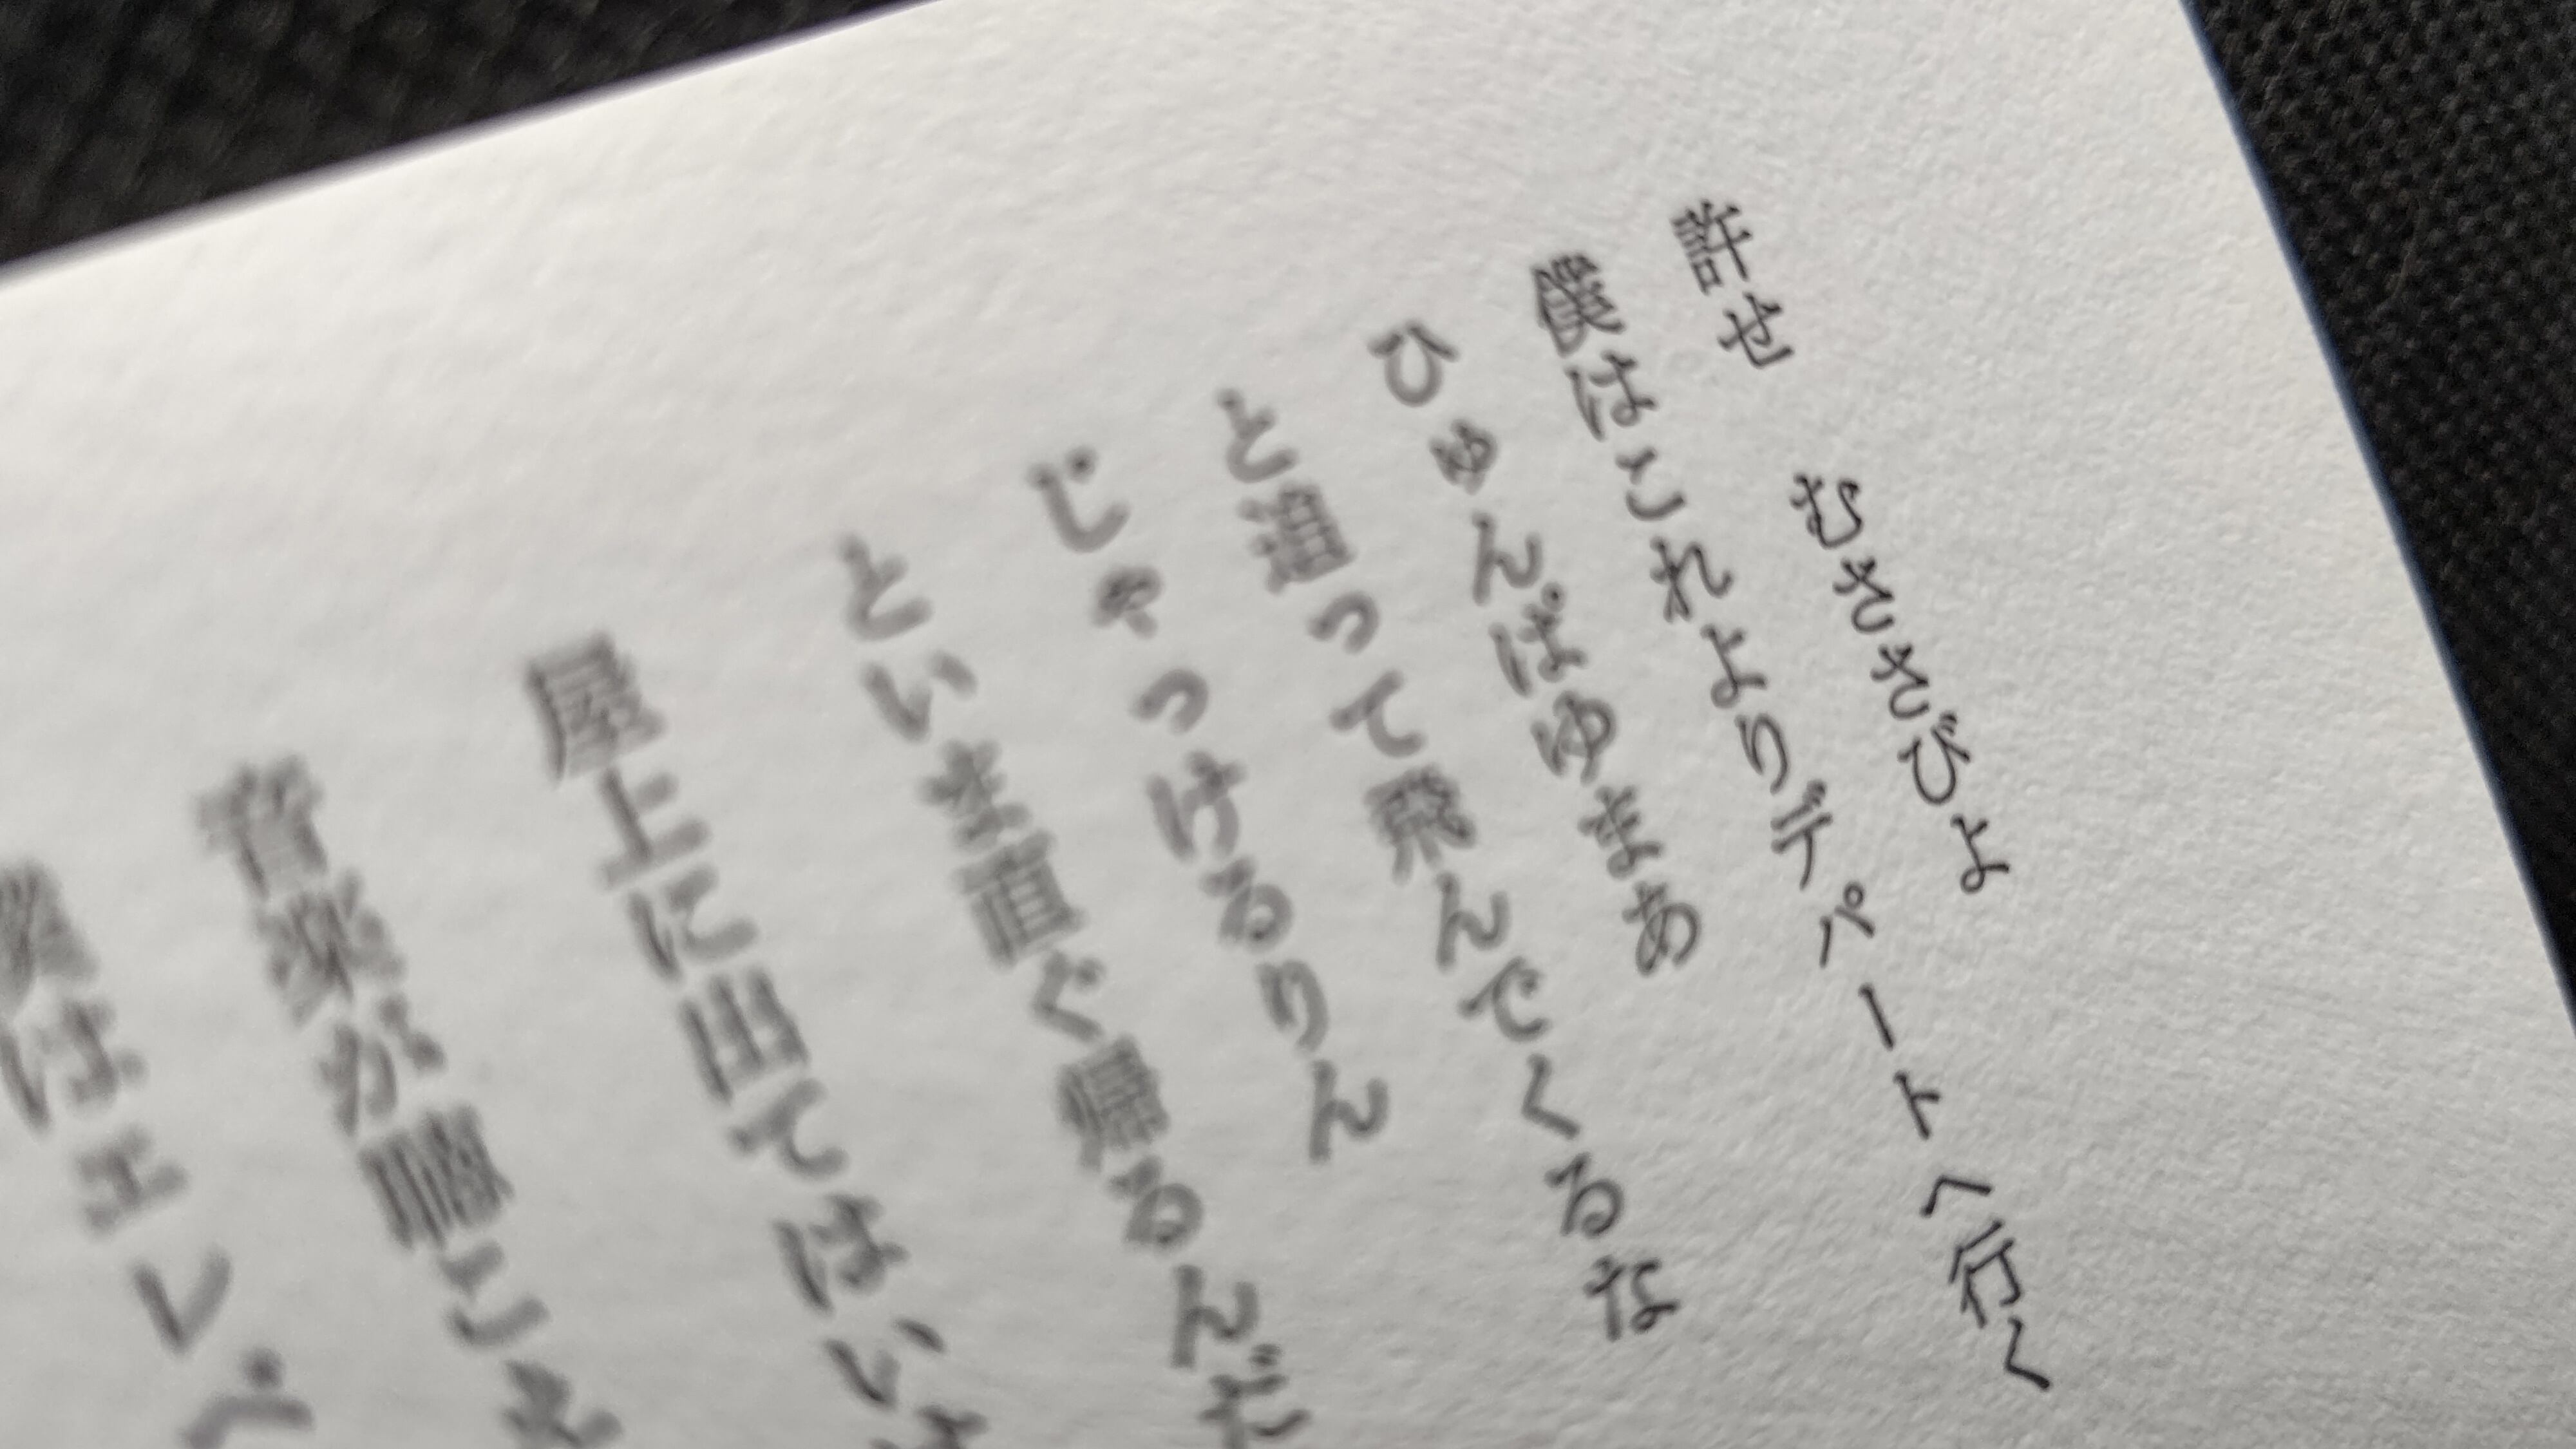 許せ　むささびよ
僕はこれよりデパートへ行く
ひゅんぱゆまあ
と追って飛んでくるな
じゃっけるりん
といま直ぐ帰るんだ
屋上に出てはい
音楽が聴こえ
僕はエレベ